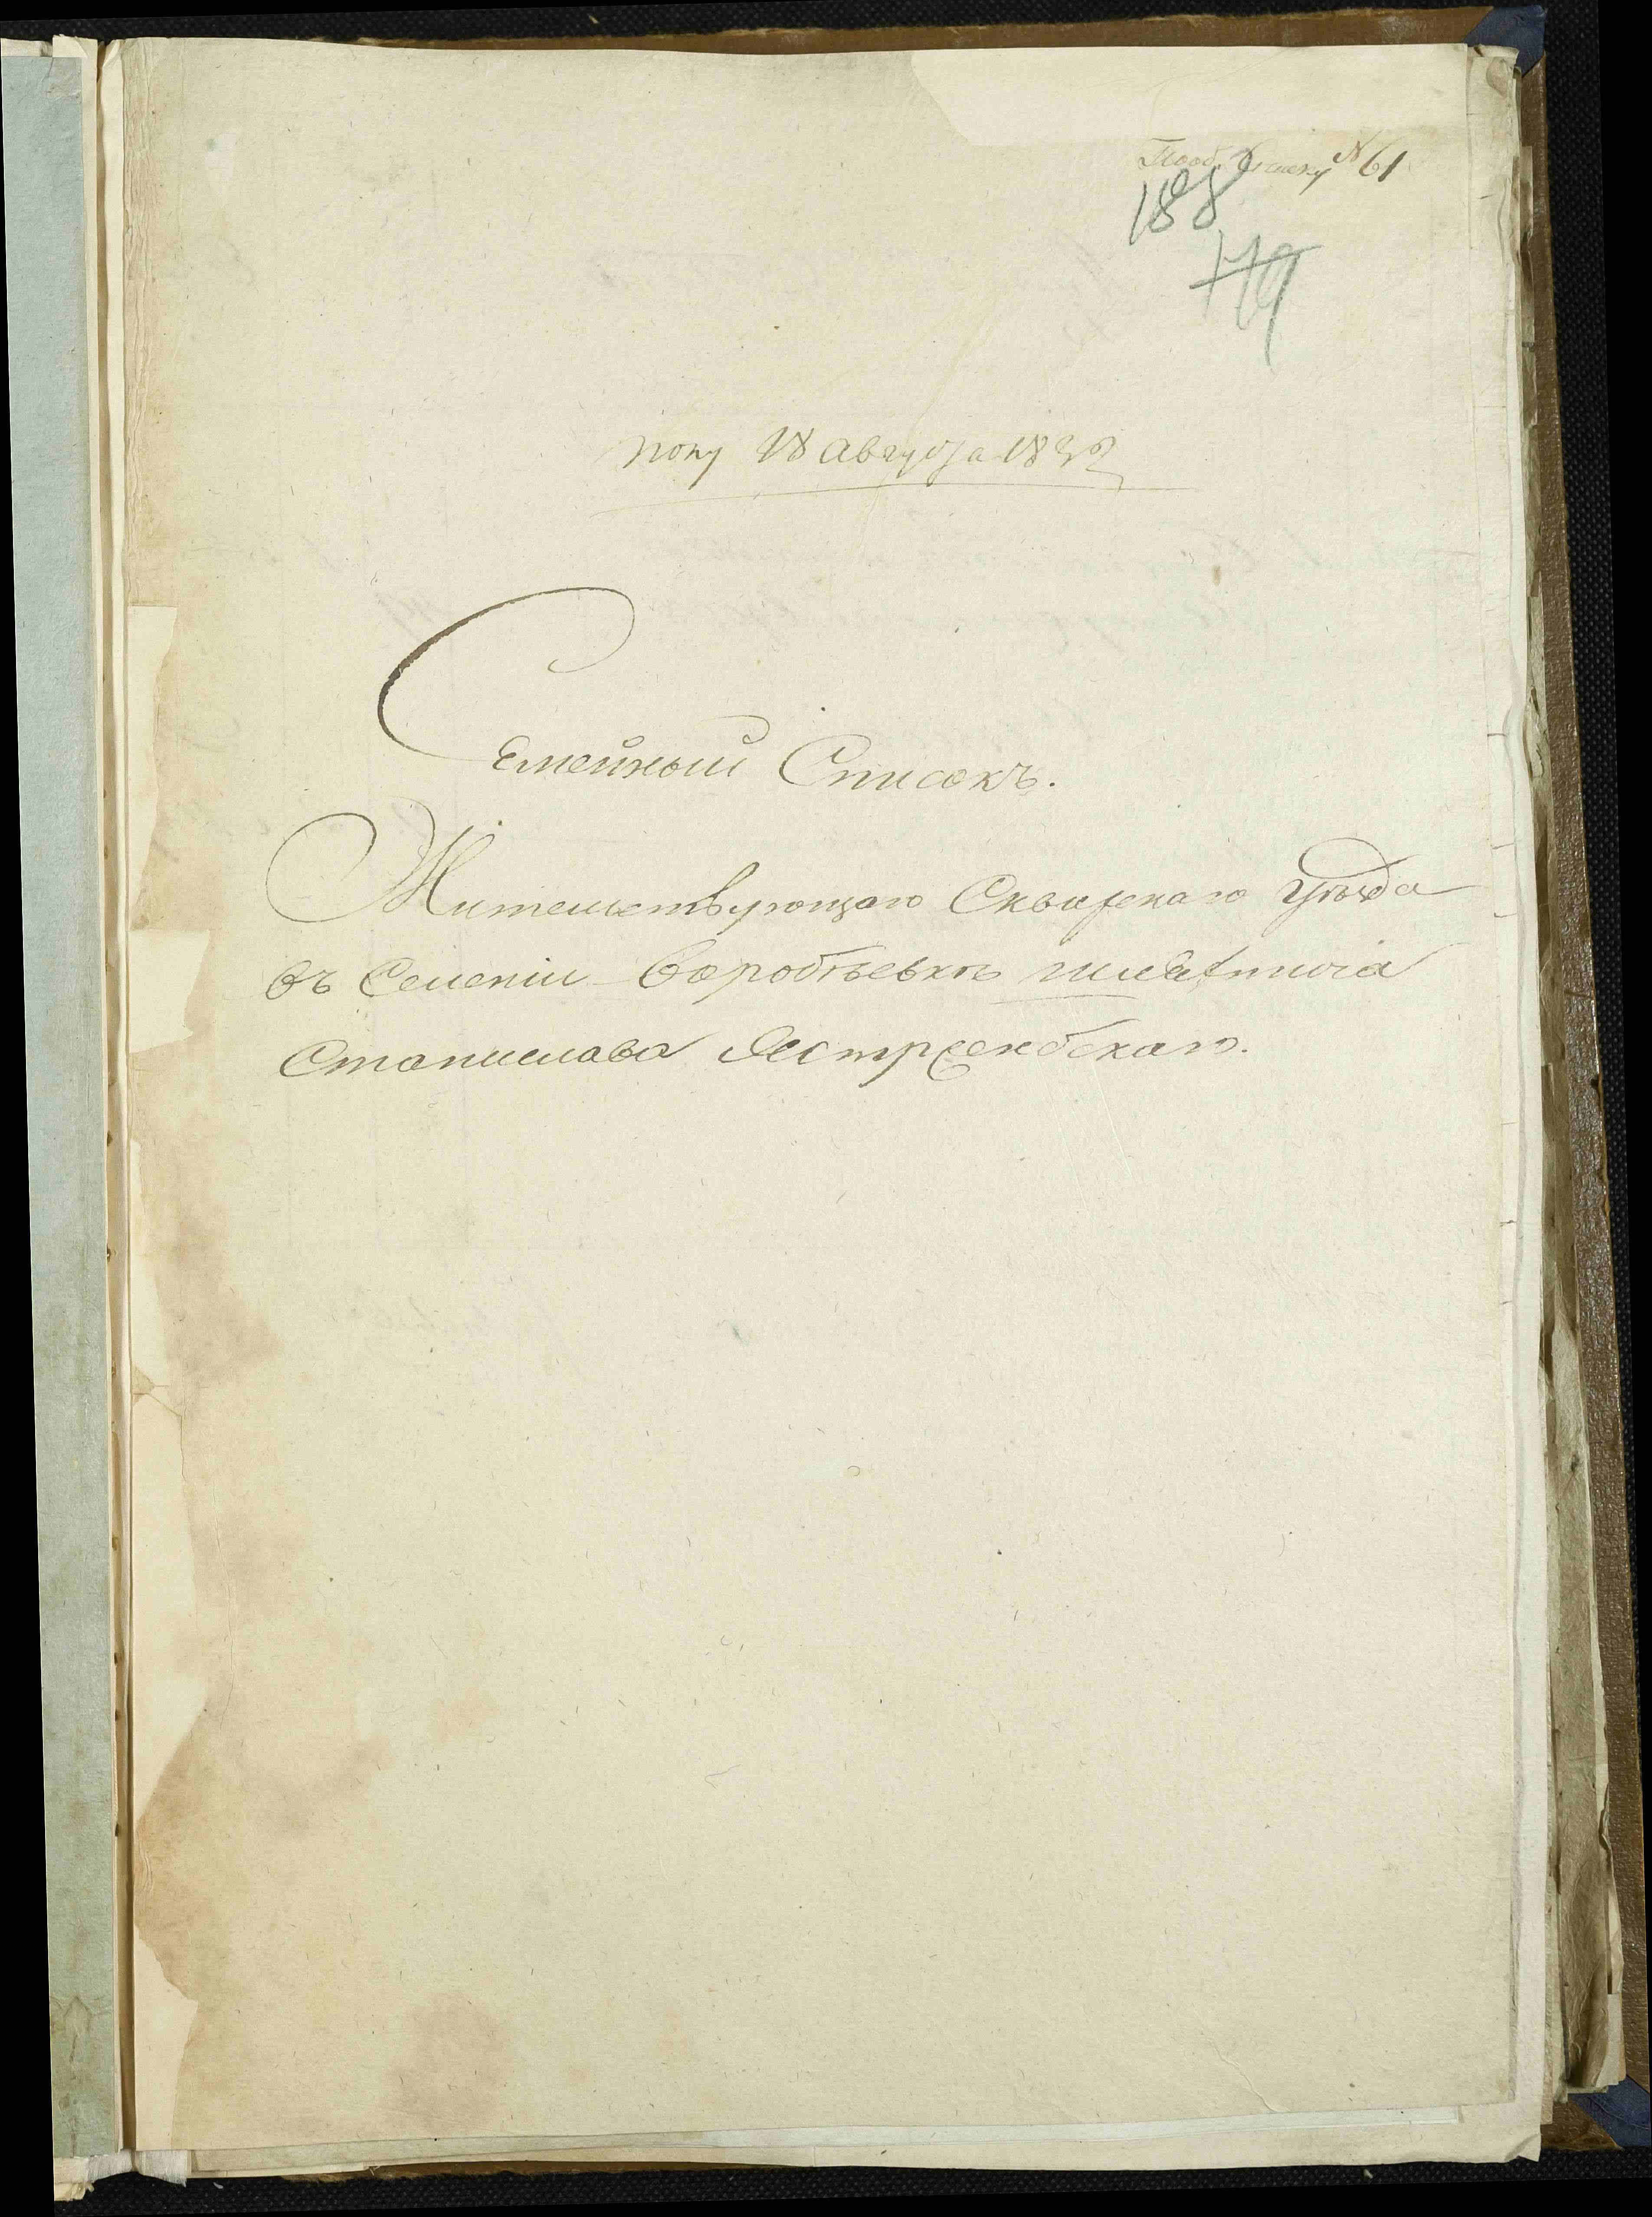 № 61
188
179
18 Августа 1832
Семейный Списокъ.
Жительствующаго Сквирскаго уѣзда
въ Селеніи Воробѣевкѣ шляхтича
Станислава Ястрсембскаго.